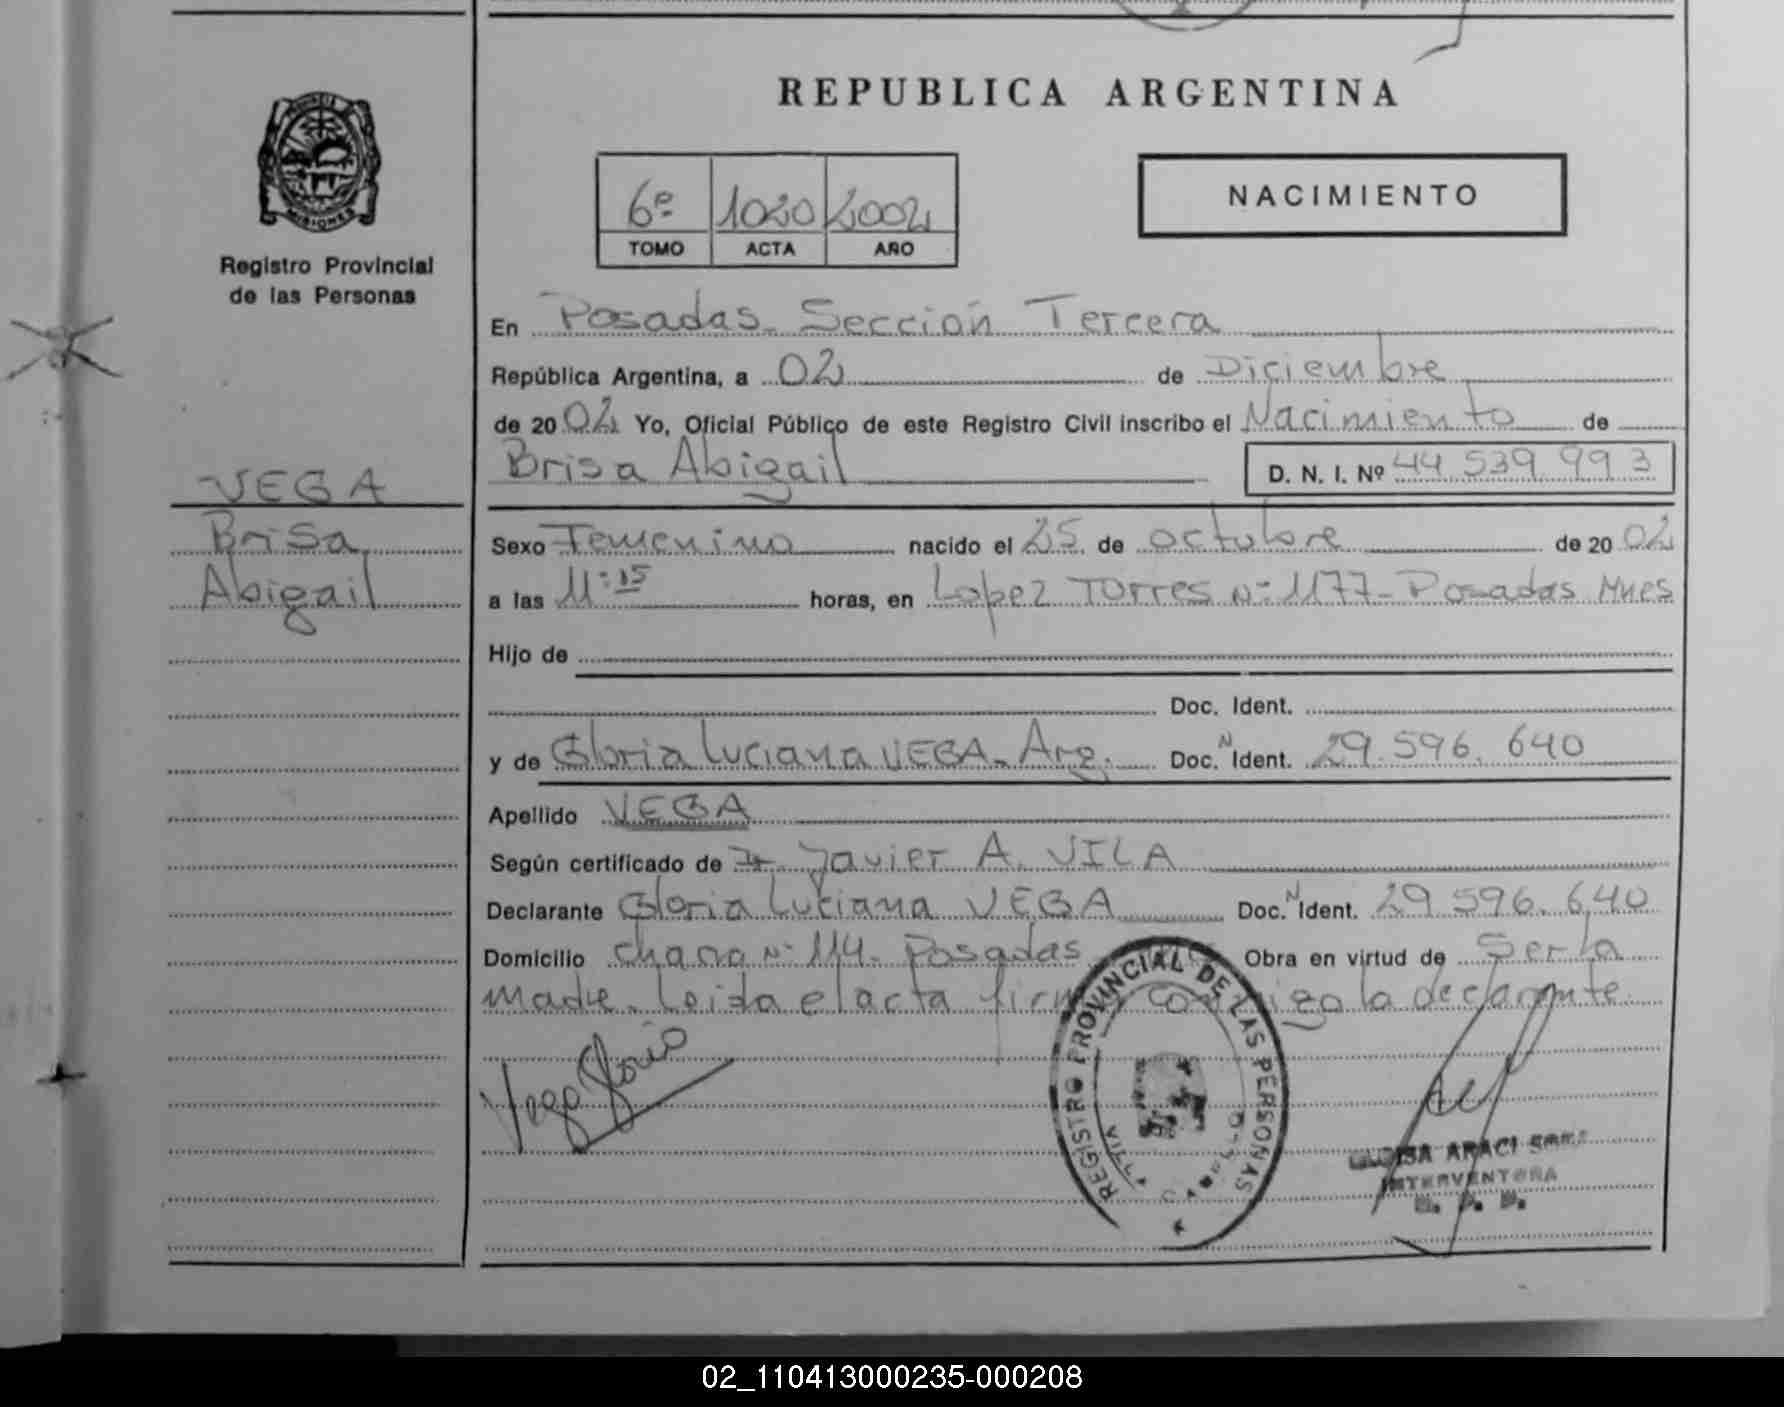 REPUBLICA ARGENTINA
MISIONES
Registro Provincial
de las Personas
6º 1020 2002
TOMO ACTA AÑO
NACIMIENTO
En Posadas. Sección Tercera
República Argentina, a 02 de Diciembre
de 2002 Yo, Oficial Público de este Registro Civil inscribo el Nacimiento de
Brisa Abigail D. N. I. Nº 44.539.993
VEGA
Brisa
Abigail
Sexo Femenino nacido el 25 de octubre de 2002
a las 11:15 horas, en Lopez Torres Nº 1177 - Posadas Mnes
Hijo de
Doc. Ident.
y de Gloria Luciana VEGA. Arg. Doc. N Ident. 29.596.640
Apellido VEGA
Según certificado de Javier A. VILA
Declarante Gloria Luciana VEGA Doc. N Ident. 29.596.640
Domicilio Nº 114. Posadas Obra en virtud de Ser la
madre. Leida el acta firma conmigo la declarante.
Vega Gloria
REGISTRO PROVINCIAL DE LAS PERSONAS
ARACI
INTERVENTORA
02_110413000235-000208